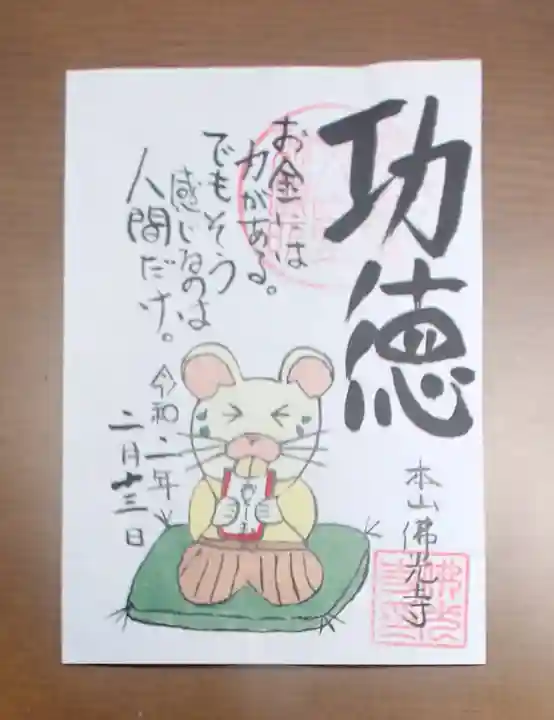 功徳
お金には
力がある。
でもそう
感じるのは
人間だけ。
令和二年
二月十三日
本山佛光寺